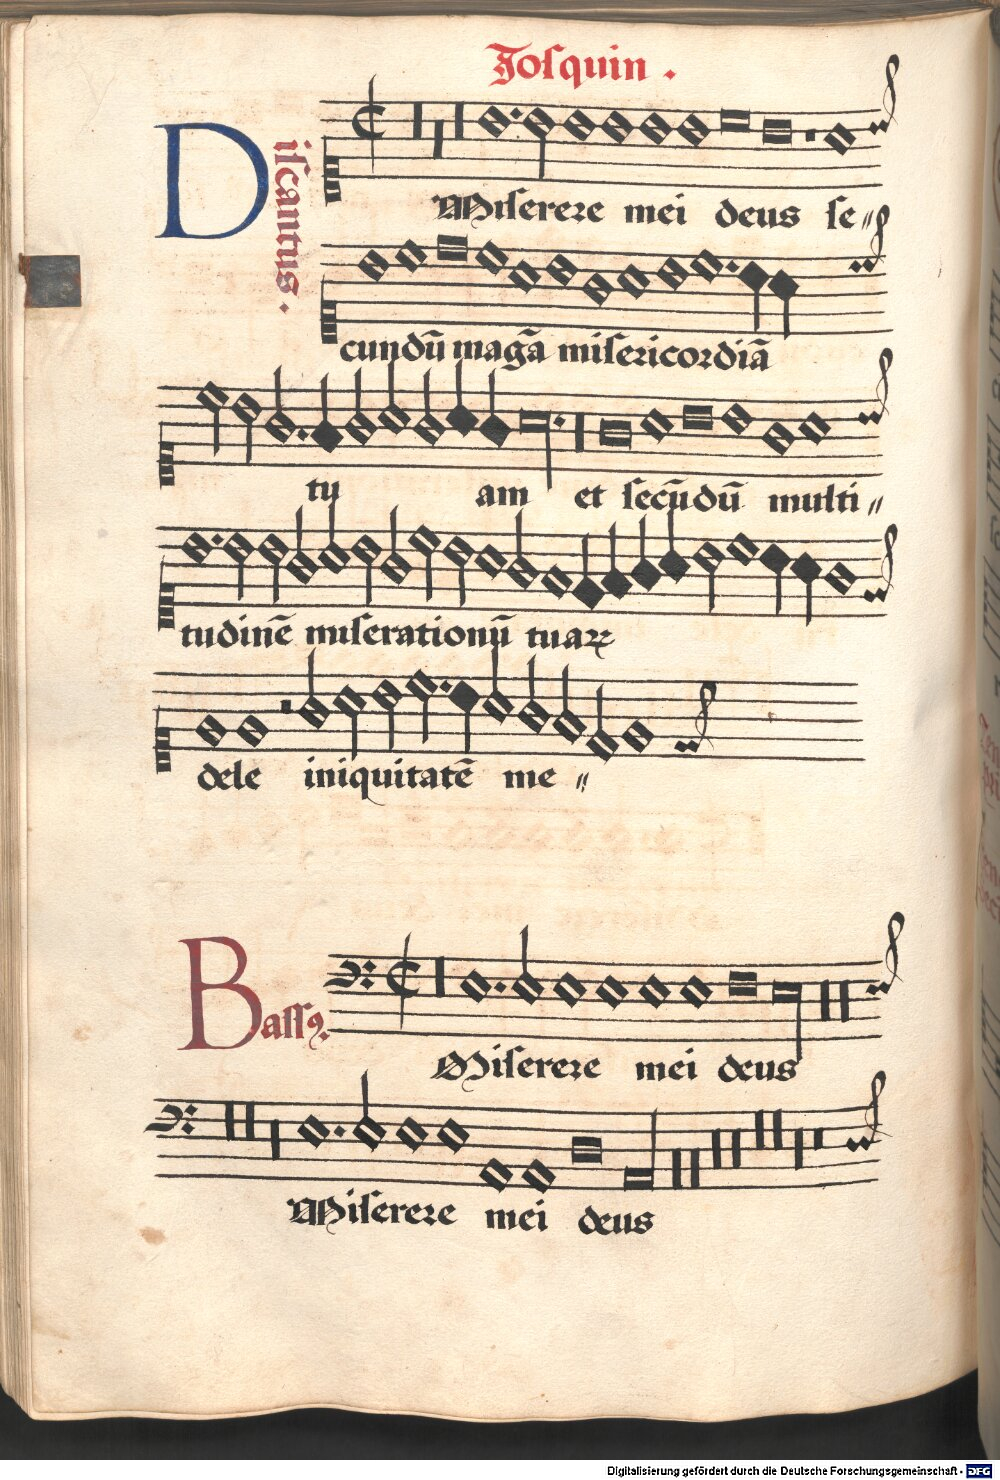 Josquin .
Discantus .
Miserere mei deus se〃
cundũ magã misericordiã
tu am et secũdũ multi〃
tudinẽ miserationũ tuaꝝ
dele iniquitatẽ me〃
Bassꝰ.
Miserere mei deus
Miserere mei deus
Digitalisierung gefördert durch die Deutsche Forschungsgemeinschaft - DFG